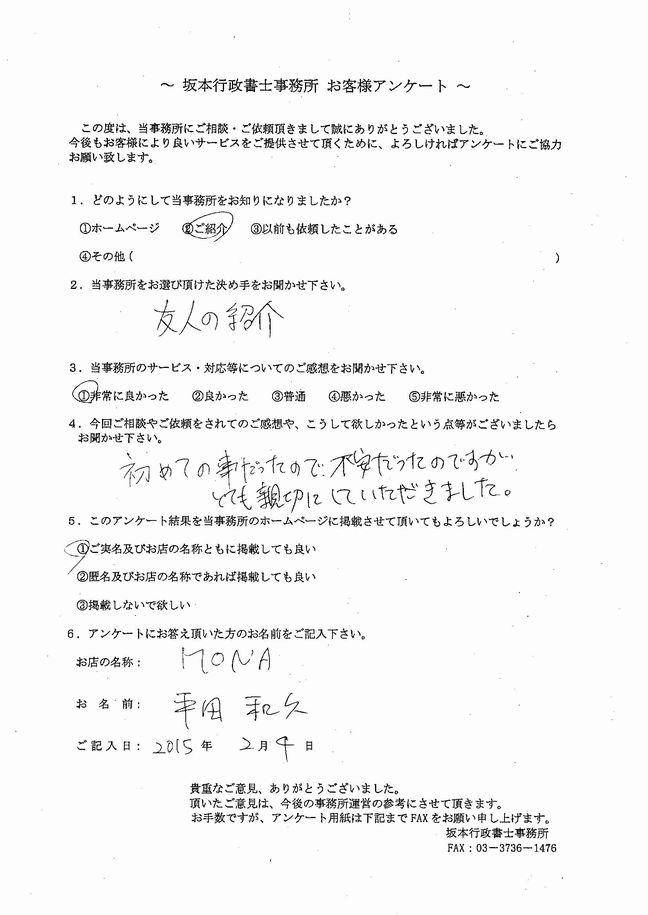 ～ 坂本行政書士事務所 お客様アンケート ～
この度は、当事務所にご相談・ご依頼頂きまして誠にありがとうございました。
今後もお客様により良いサービスをご提供させて頂くために、よろしければアンケートにご協力
お願い致します。
1．どのようにして当事務所をお知りになりましたか？
①ホームページ ②ご紹介 ③以前も依頼したことがある
④その他 ( )
2．当事務所をお選び頂けた決め手をお聞かせ下さい。
友人の紹介
3．当事務所のサービス・対応等についてのご感想をお聞かせ下さい。
①非常に良かった ②良かった ③普通 ④悪かった ⑤非常に悪かった
4．今回ご相談やご依頼をされてのご感想や、こうして欲しかったという点等がございましたら
お聞かせ下さい。
初めての事だったので、不安だったのですが…
とても親切にしていただきました。
5．このアンケート結果を当事務所のホームページに掲載させて頂いてもよろしいでしょうか？
①ご実名及びお店の名称ともに掲載しても良い
②匿名及びお店の名称であれば掲載しても良い
③掲載しないで欲しい
6．アンケートにお答え頂いた方のお名前をご記入下さい。
お店の名称： MONA
お 名 前： 平田 和久
ご記入日：2015 年 2 月 4 日
貴重なご意見、ありがとうございました。
頂いたご意見は、今後の事務所運営の参考にさせて頂きます。
お手数ですが、アンケート用紙は下記まで FAX をお願い申し上げます。
坂本行政書士事務所
FAX：03－3736－1476